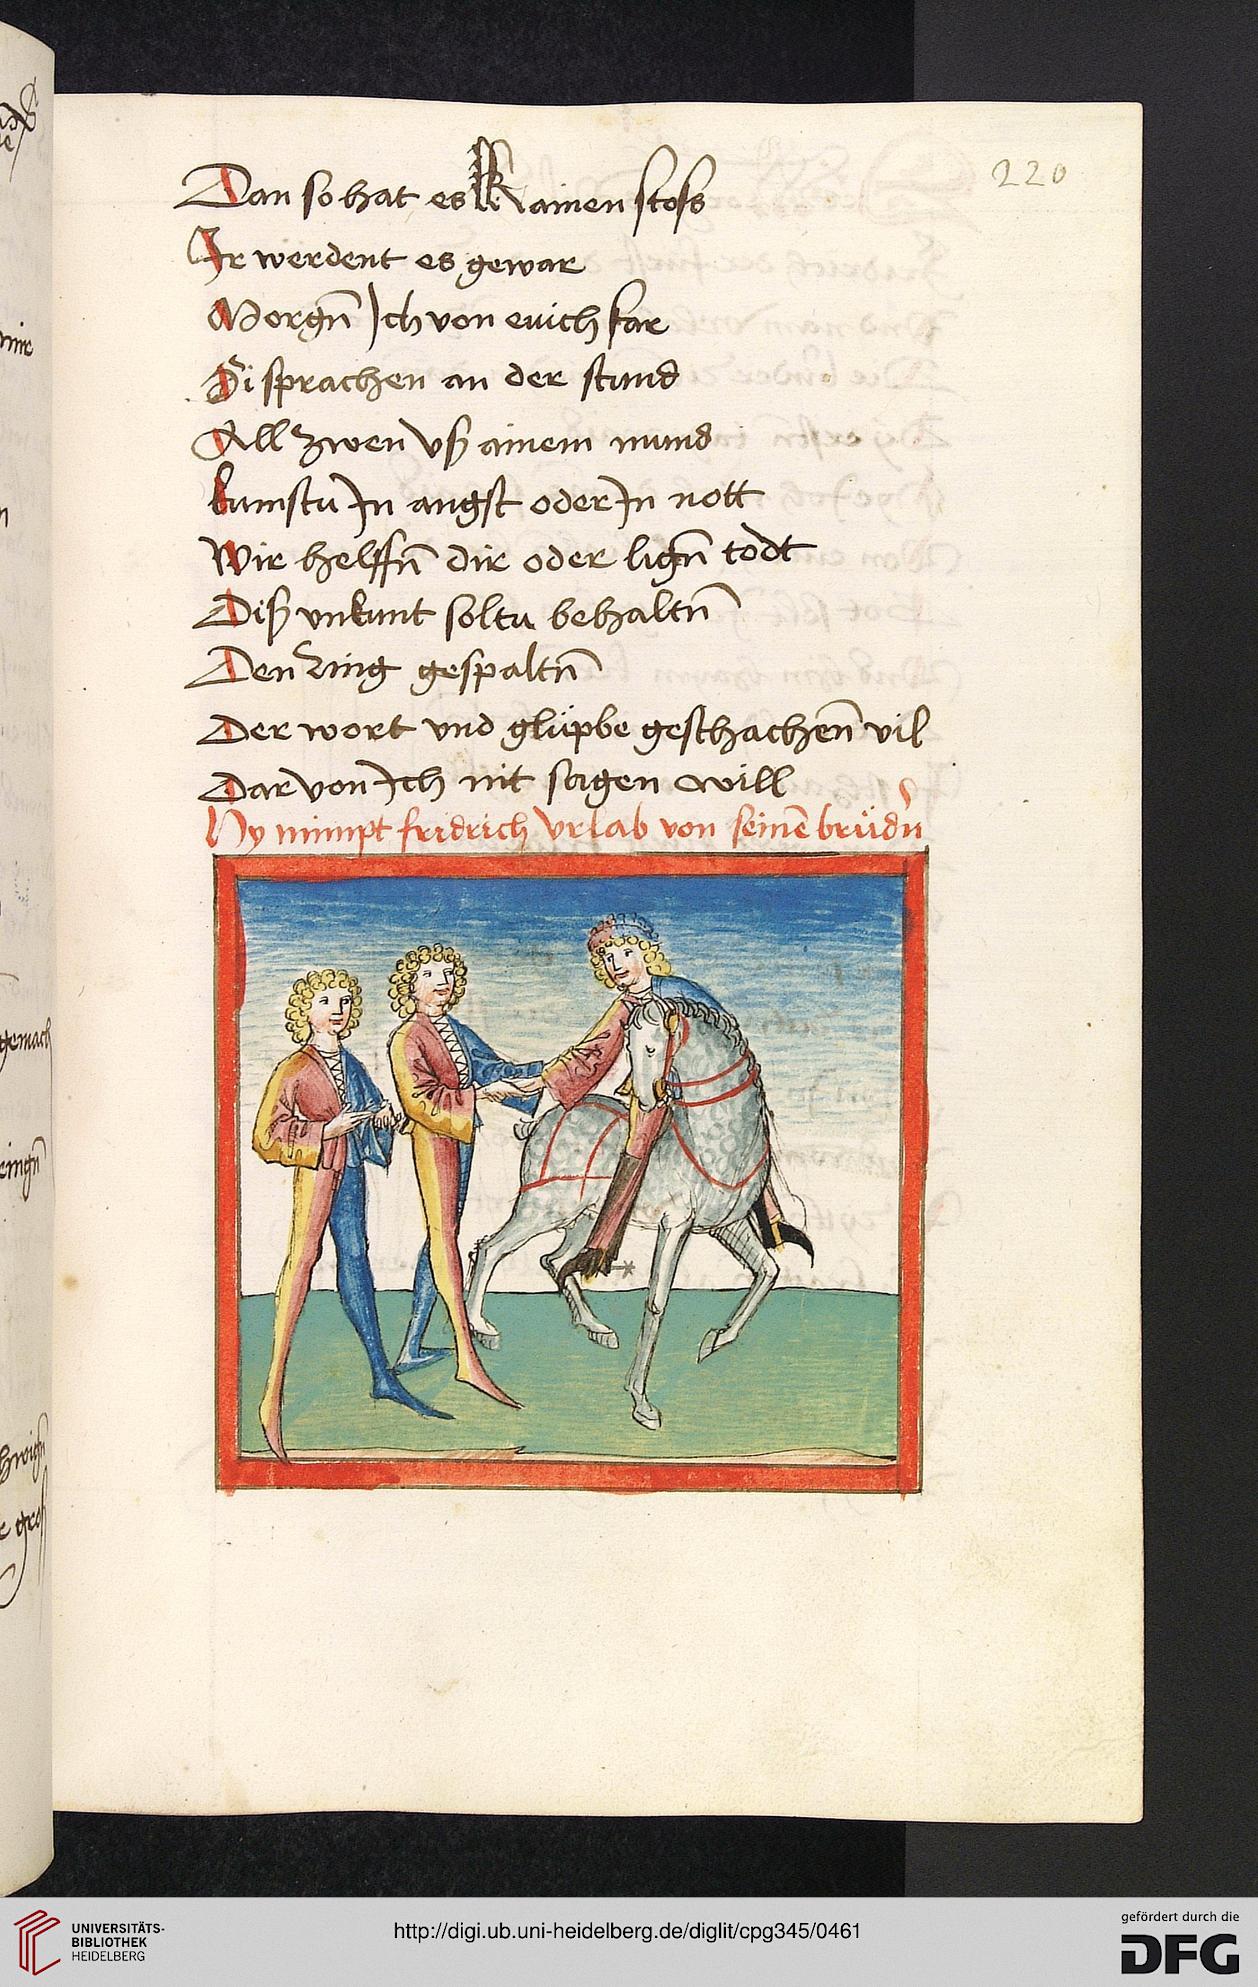 220
Dan so hat es kainen stoss
Ir werdent es gewar
Morgn̄ Ich von euich kar
Si sprachen an der stund
All zwen vß ainem mund
kumstu In angst oder In nott
Wir helffn̄ dir oder lign̄ todt
Diß vrkunt soltu behaltn̄
Den Ring gespaltn̄
Der wort vnd glüpbe geschachen̄ vil
Dar von Ich nit sagen will
Hy nimpt fridrich vrlab von seinē brüdn̄
gemach
UNIVERSITÄTS-
BIBLIOTHEK
HEIDELBERG
http://digi.ub.uni-heidelberg.de/diglit/cpg345/0461
gefördert durch die
DFG